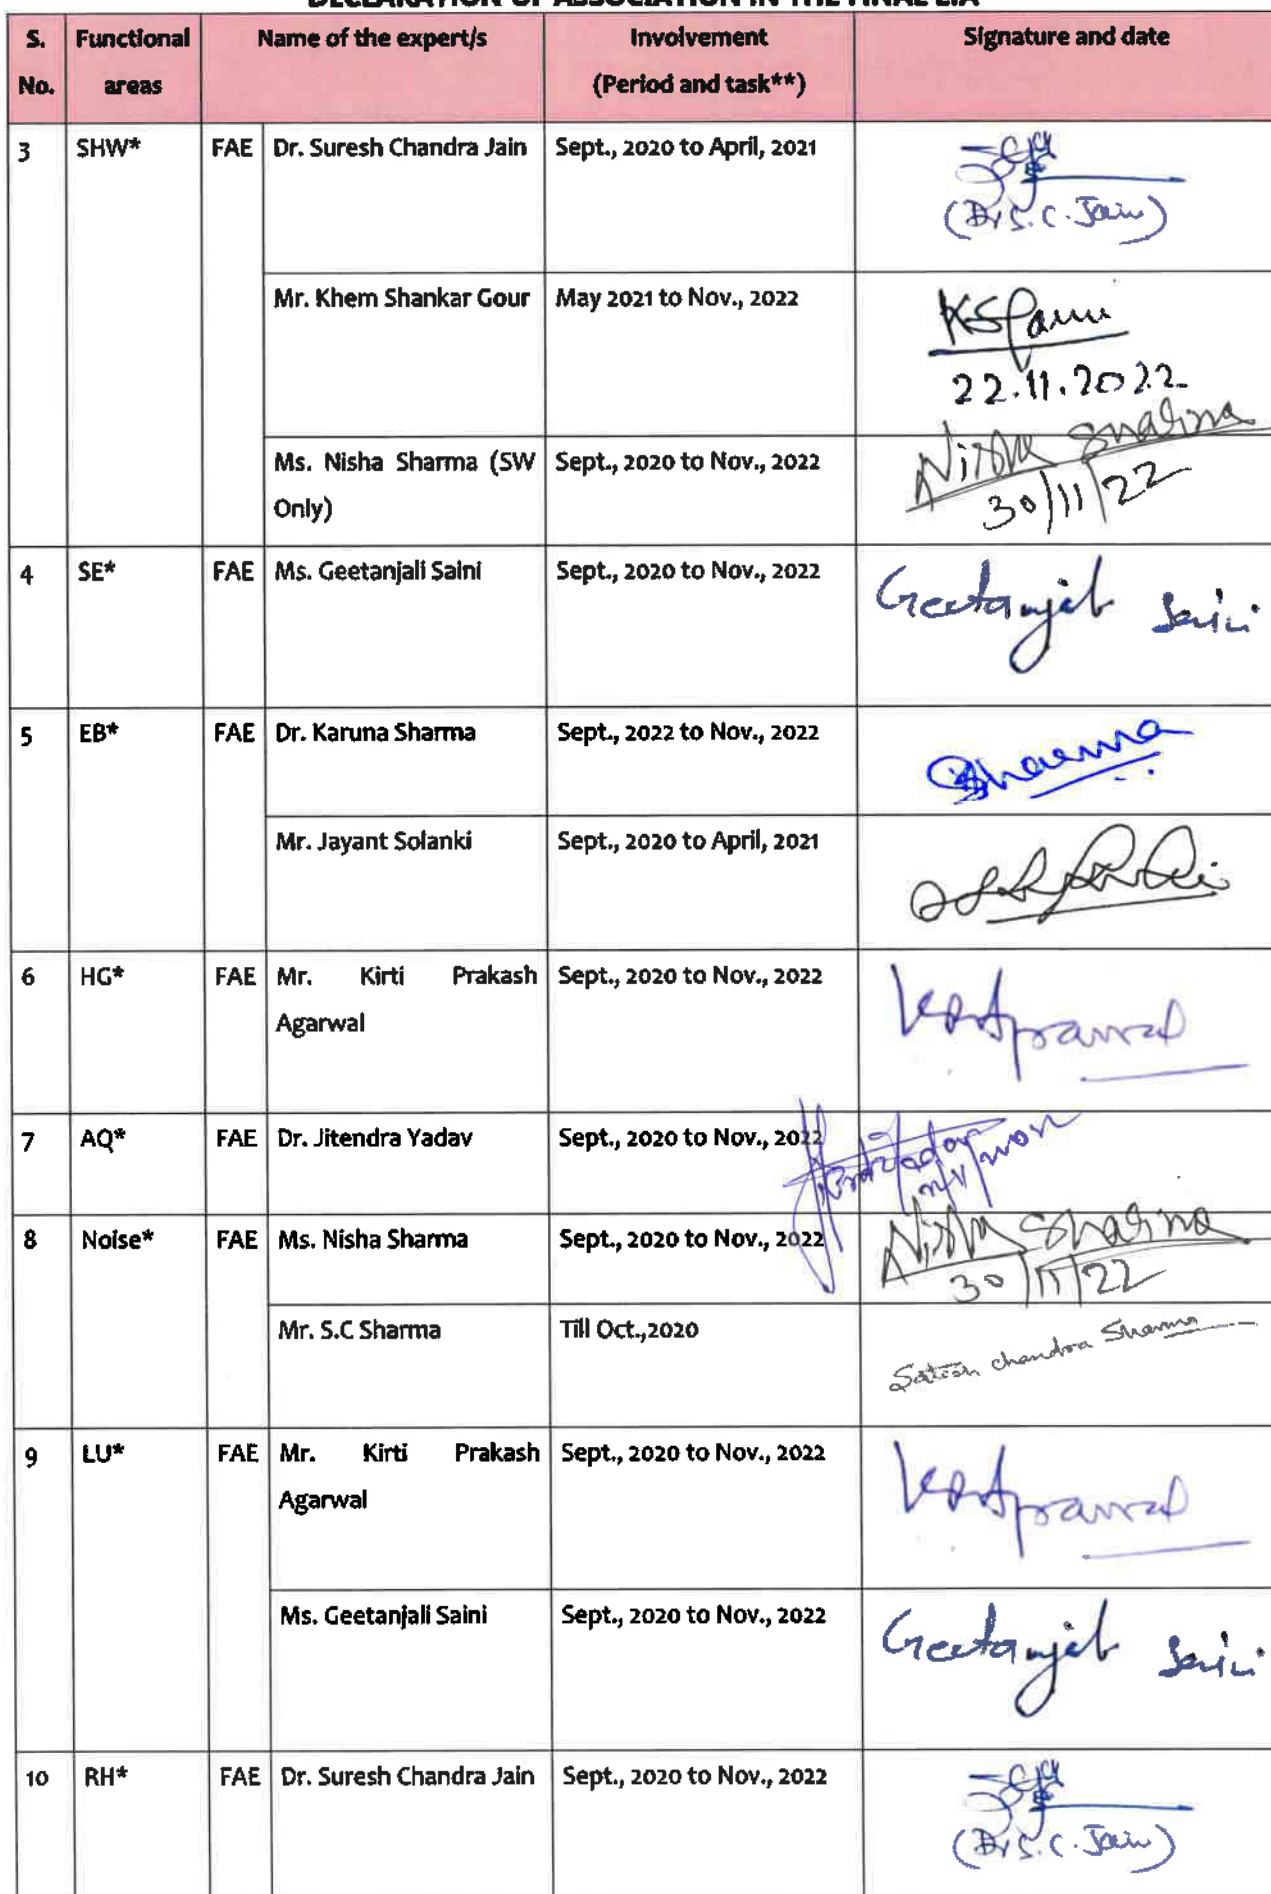 DECLARATION OF ASSOCIATION IN THE FINAL EIA
S. Functional Name of the expert/s Involvement Signature and date
No. areas (Period and task**)
3 SHW* FAE Dr. Suresh Chandra Jain Sept., 2020 to April, 2021
(Dr S. C. Jain)
Mr. Khem Shankar Gour May 2021 to Nov., 2022
22.11.2022
Ms. Nisha Sharma (SW Sept., 2020 to Nov., 2022 Nisha Sharma
Only) 30/11/22
4 SE* FAE Ms. Geetanjali Saini Sept., 2020 to Nov., 2022 Geetanjali Saini
5 EB* FAE Dr. Karuna Sharma Sept., 2022 to Nov., 2022
Mr. Jayant Solanki Sept., 2020 to April, 2021
6 HG* FAE Mr. Kirti Prakash Sept., 2020 to Nov., 2022
Agarwal
7 AQ* FAE Dr. Jitendra Yadav Sept., 2020 to Nov., 2022
8 Noise* FAE Ms. Nisha Sharma Sept., 2020 to Nov., 2022 Nisha Sharma
30/11/22
Mr. S.C Sharma Till Oct.,2020 Satish Chandra Sharma
9 LU* FAE Mr. Kirti Prakash Sept., 2020 to Nov., 2022
Agarwal
Ms. Geetanjali Saini Sept., 2020 to Nov., 2022 Geetanjali Saini
10 RH* FAE Dr. Suresh Chandra Jain Sept., 2020 to Nov., 2022
(Dr S. C. Jain)